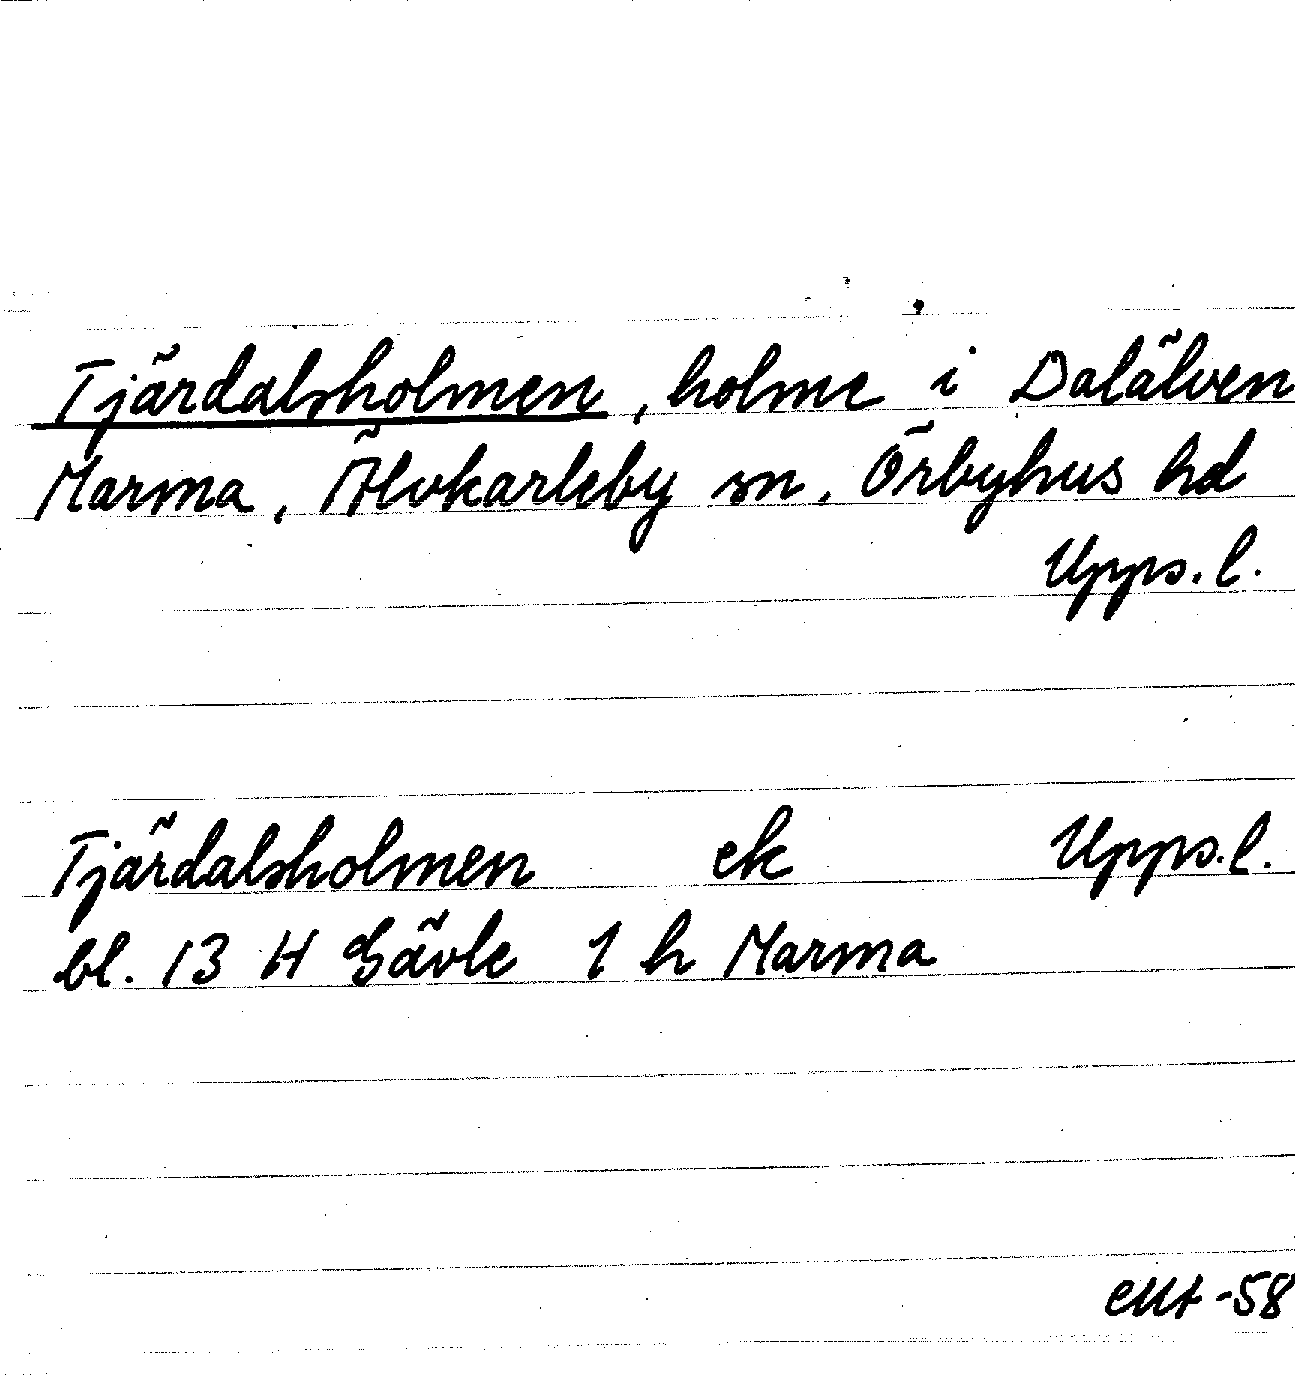 Tjärdalsholmen, holme i Dalälven
Marma, Älvkarleby sn, Örbyhus hd
Upps. l.
Tjärdalsholmen ek Upps. l.
bl. 13 H Gävle 1 h Marma
-58